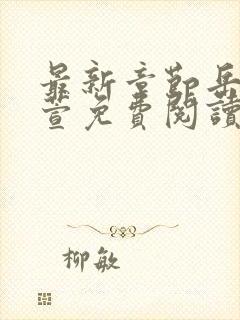 最新章節岳
萱免費閱讀
柳敏